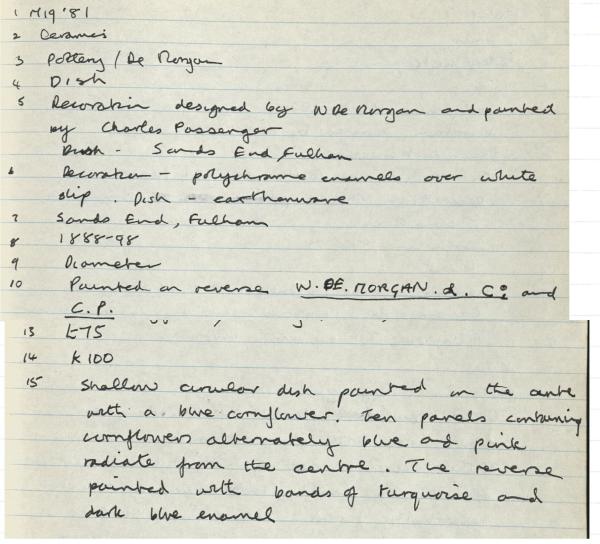 1 M19'81
2 Ceramics
3 Pottery / De Morgan
4 Dish
5 Decoration designed by W De Morgan and painted
by Charles Passenger
Dish - Sands End, Fulham
6 Decoration - polychrome enamels over white
slip. Dish - earthenware
7 Sands End, Fulham
8 1888-98
9 Diameter
10 Painted on reverse W. DE. MORGAN. &. Co and
C.P.
13 £75
14 K100
15 Shallow circular dish painted in the centre
with a blue cornflower. Ten panels containing
cornflowers alternately blue and pink
radiate from the centre. The reverse
painted with bands of turquoise and
dark blue enamel